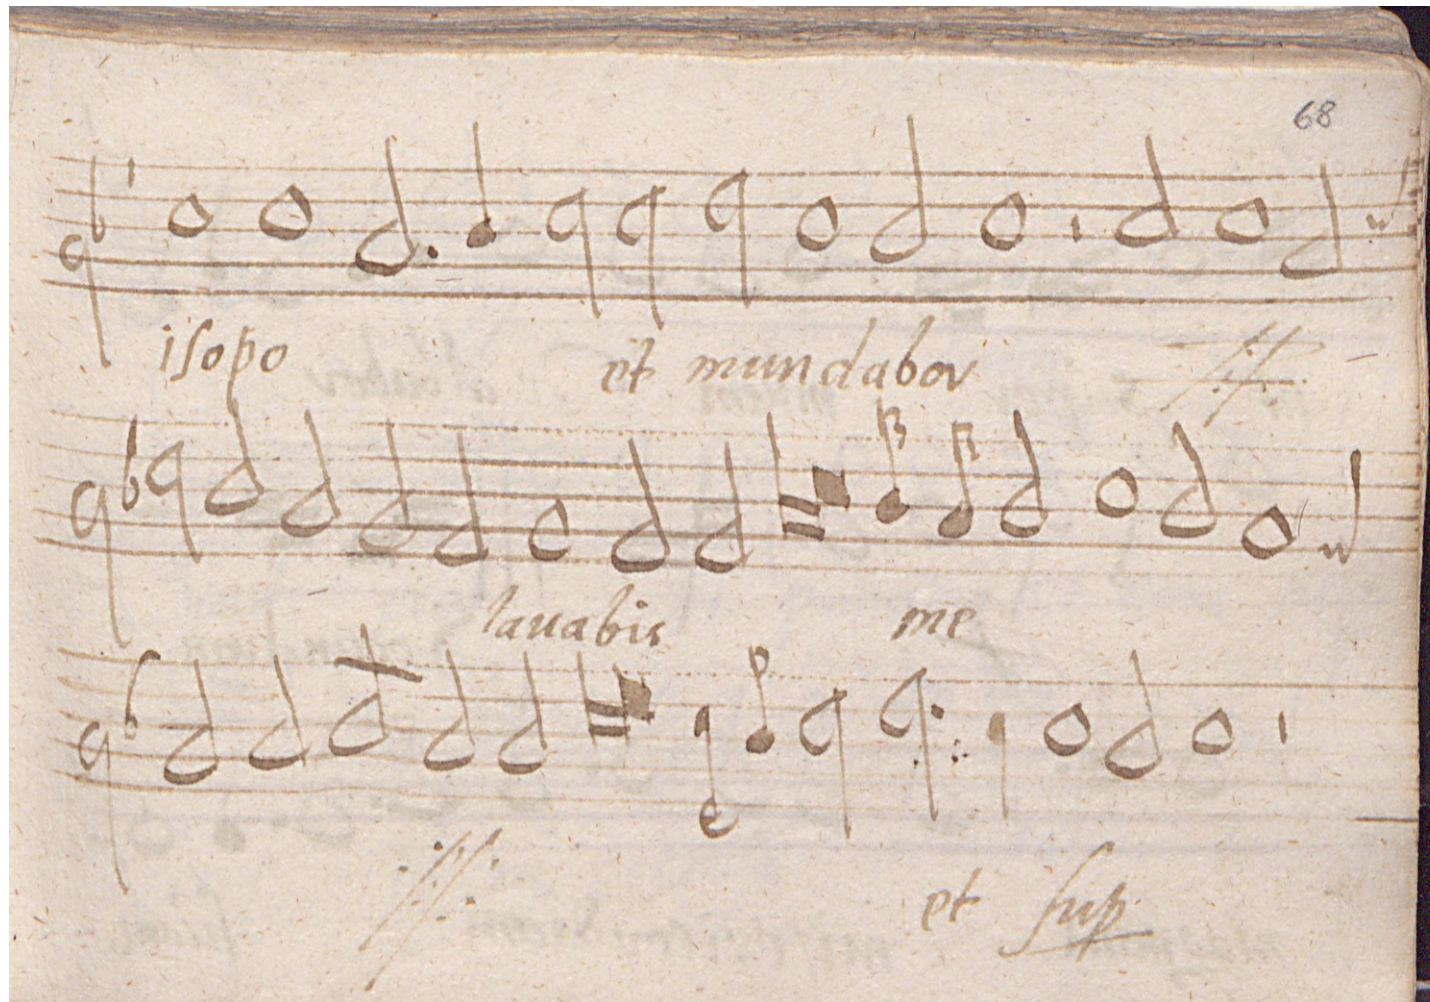 68
isopo et mundabor
lavabis me
et sup